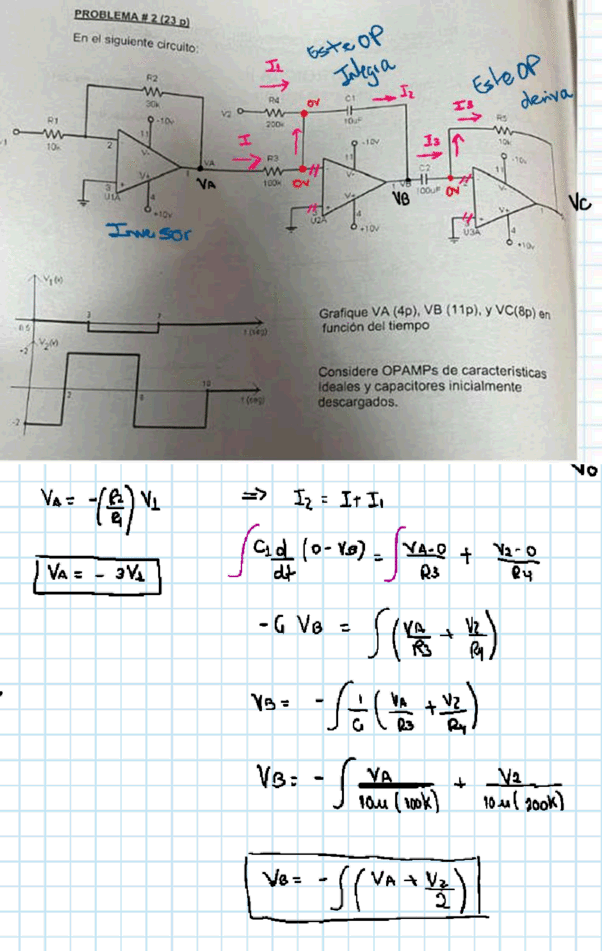 PROBLEMA # 2 (23 p)
En el siguiente circuito:
Este OP
Integra
Este OP
deriva
I1
I2
I3
R2
30k
R1
10k
-10v
11
V-
2
3
V+
4
U1A
+10v
1
VA
VA
Inversor
V2
R4
200k
C1
10uF
0V
I
R3
100k
0V
-10v
11
V-
V+
4
U2A
+10v
1
VB
VB
I3
C2
100uF
0V
R5
10k
-10v
11
V-
V+
4
U3A
+10v
1
VC
V1(v)
-0.5
3
7
t (seg)
V2(v)
+2
2
6
10
t (seg)
-2
Grafique VA (4p), VB (11p), y VC(8p) en
función del tiempo
Considere OPAMPs de características
ideales y capacitores inicialmente
descargados.
Vo
VA = -(R2/R1) V1
VA = - 3V1
=> I2 = I + I1
∫ C1 d/dt (0 - VB) = ∫ VA-0/R3 + V2-0/R4
-C1 VB = ∫ (VA/R3 + V2/R4)
VB = - ∫ 1/C1 (VA/R3 + V2/R4)
VB = - ∫ VA/10u(100k) + V2/10u(200k)
VB = - ∫ (VA + V2/2)